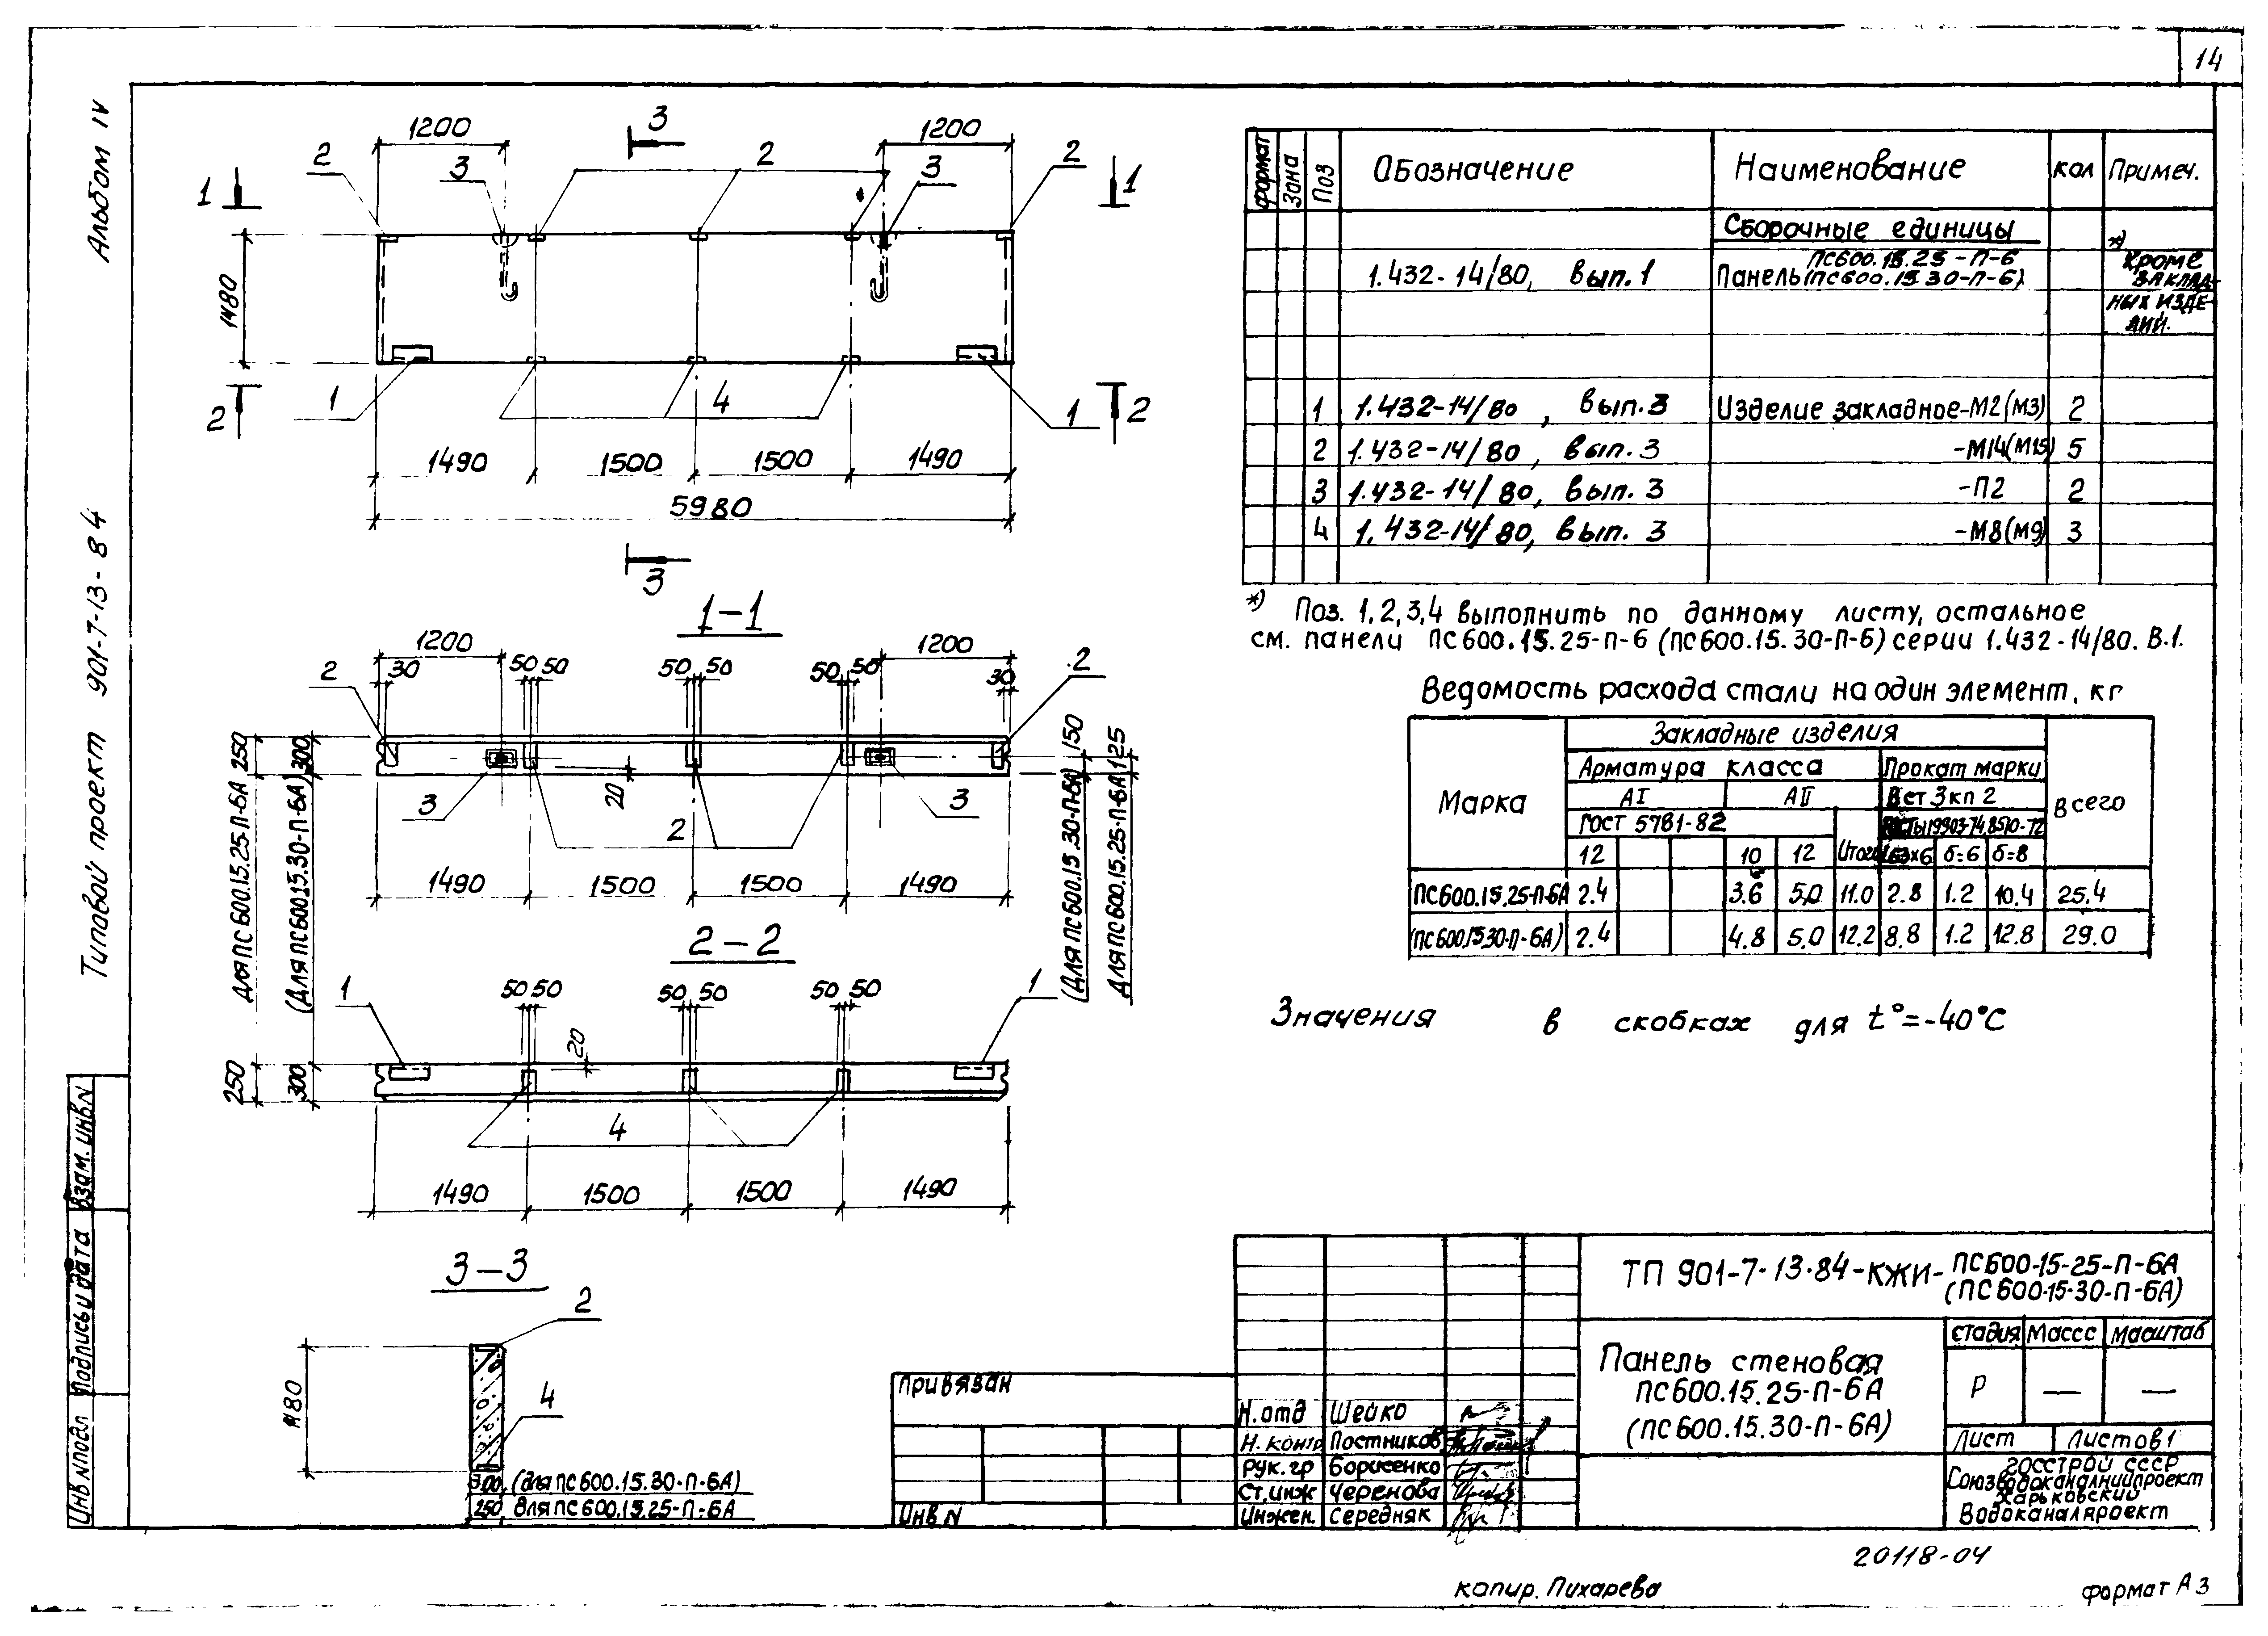 14
Альбом IV
Типовой проект 901-7-13-84
Инв N подл Подпись и дата Взам. инв N
1200
3
1200
2
3
2
3
2
1
1
1480
1
4
1
2
2
1490 1500 1500 1490
5980
3
1-1
1200
1200
2
30
50 50
50 50
50 50
30
2
250
300
150
125
3
20
3
2
1490 1500 1500 1490
Для ПС600.15.25-П-6А
(Для ПС600.15.30-П-6А)
(Для ПС600.15.30-П-6А)
Для ПС600.15.25-П-6А
2-2
1
50 50
50 50
50 50
1
20
250
300
4
1490 1500 1500 1490
3-3
2
1480
4
300 (для ПС600.15.30-П-6А)
250 для ПС600.15.25-П-6А
Формат Зона Поз Обозначение Наименование Кол Примеч.
Сборочные единицы
*)
1.432-14/80, вып. 1 Панель ПС600.15.25-П-6 (ПС600.15.30-П-6) Кроме закладных изделий.
1 1.432-14/80, вып. 3 Изделие закладное-М2(М3) 2
2 1.432-14/80, вып. 3 -М14(М15) 5
3 1.432-14/80, вып. 3 -П2 2
4 1.432-14/80, вып. 3 -М8(М9) 3
*) Поз. 1,2,3,4 выполнить по данному листу, остальное
см. панели ПС600.15.25-П-6 (ПС600.15.30-П-6) серии 1.432-14/80. В.1.
Ведомость расхода стали на один элемент, кг
Марка Закладные изделия Всего
Арматура класса Прокат марки
АI АII Вст3кп2
ГОСТ 5781-82 ГОСТы 19903-74, 8510-72
12 10 12 Итого 63х6 б=6 б=8
ПС600.15.25-П-6А 2.4 3.6 5.0 11.0 2.8 1.2 10.4 25.4
(ПС600.15.30-П-6А) 2.4 4.8 5.0 12.2 8.8 1.2 12.8 29.0
Значения в скобках для t°=-40°С
ТП 901-7-13-84-КЖИ-ПС600-15-25-П-6А
(ПС600-15-30-П-6А)
Панель стеновая
ПС600.15.25-П-6А
(ПС600.15.30-П-6А)
Стадия Массс Масштаб
Р — —
Лист Листов 1
Госстрой СССР
Союзводоканалниипроект
Харьковский
Водоканалпроект
Привязан
Инв N
Н.отд Шейко
Н. контр Постников
Рук. гр Борисенко
Ст. инж Черенова
Инжен. Середняк
20118-04
копир. Пихарева
формат А3